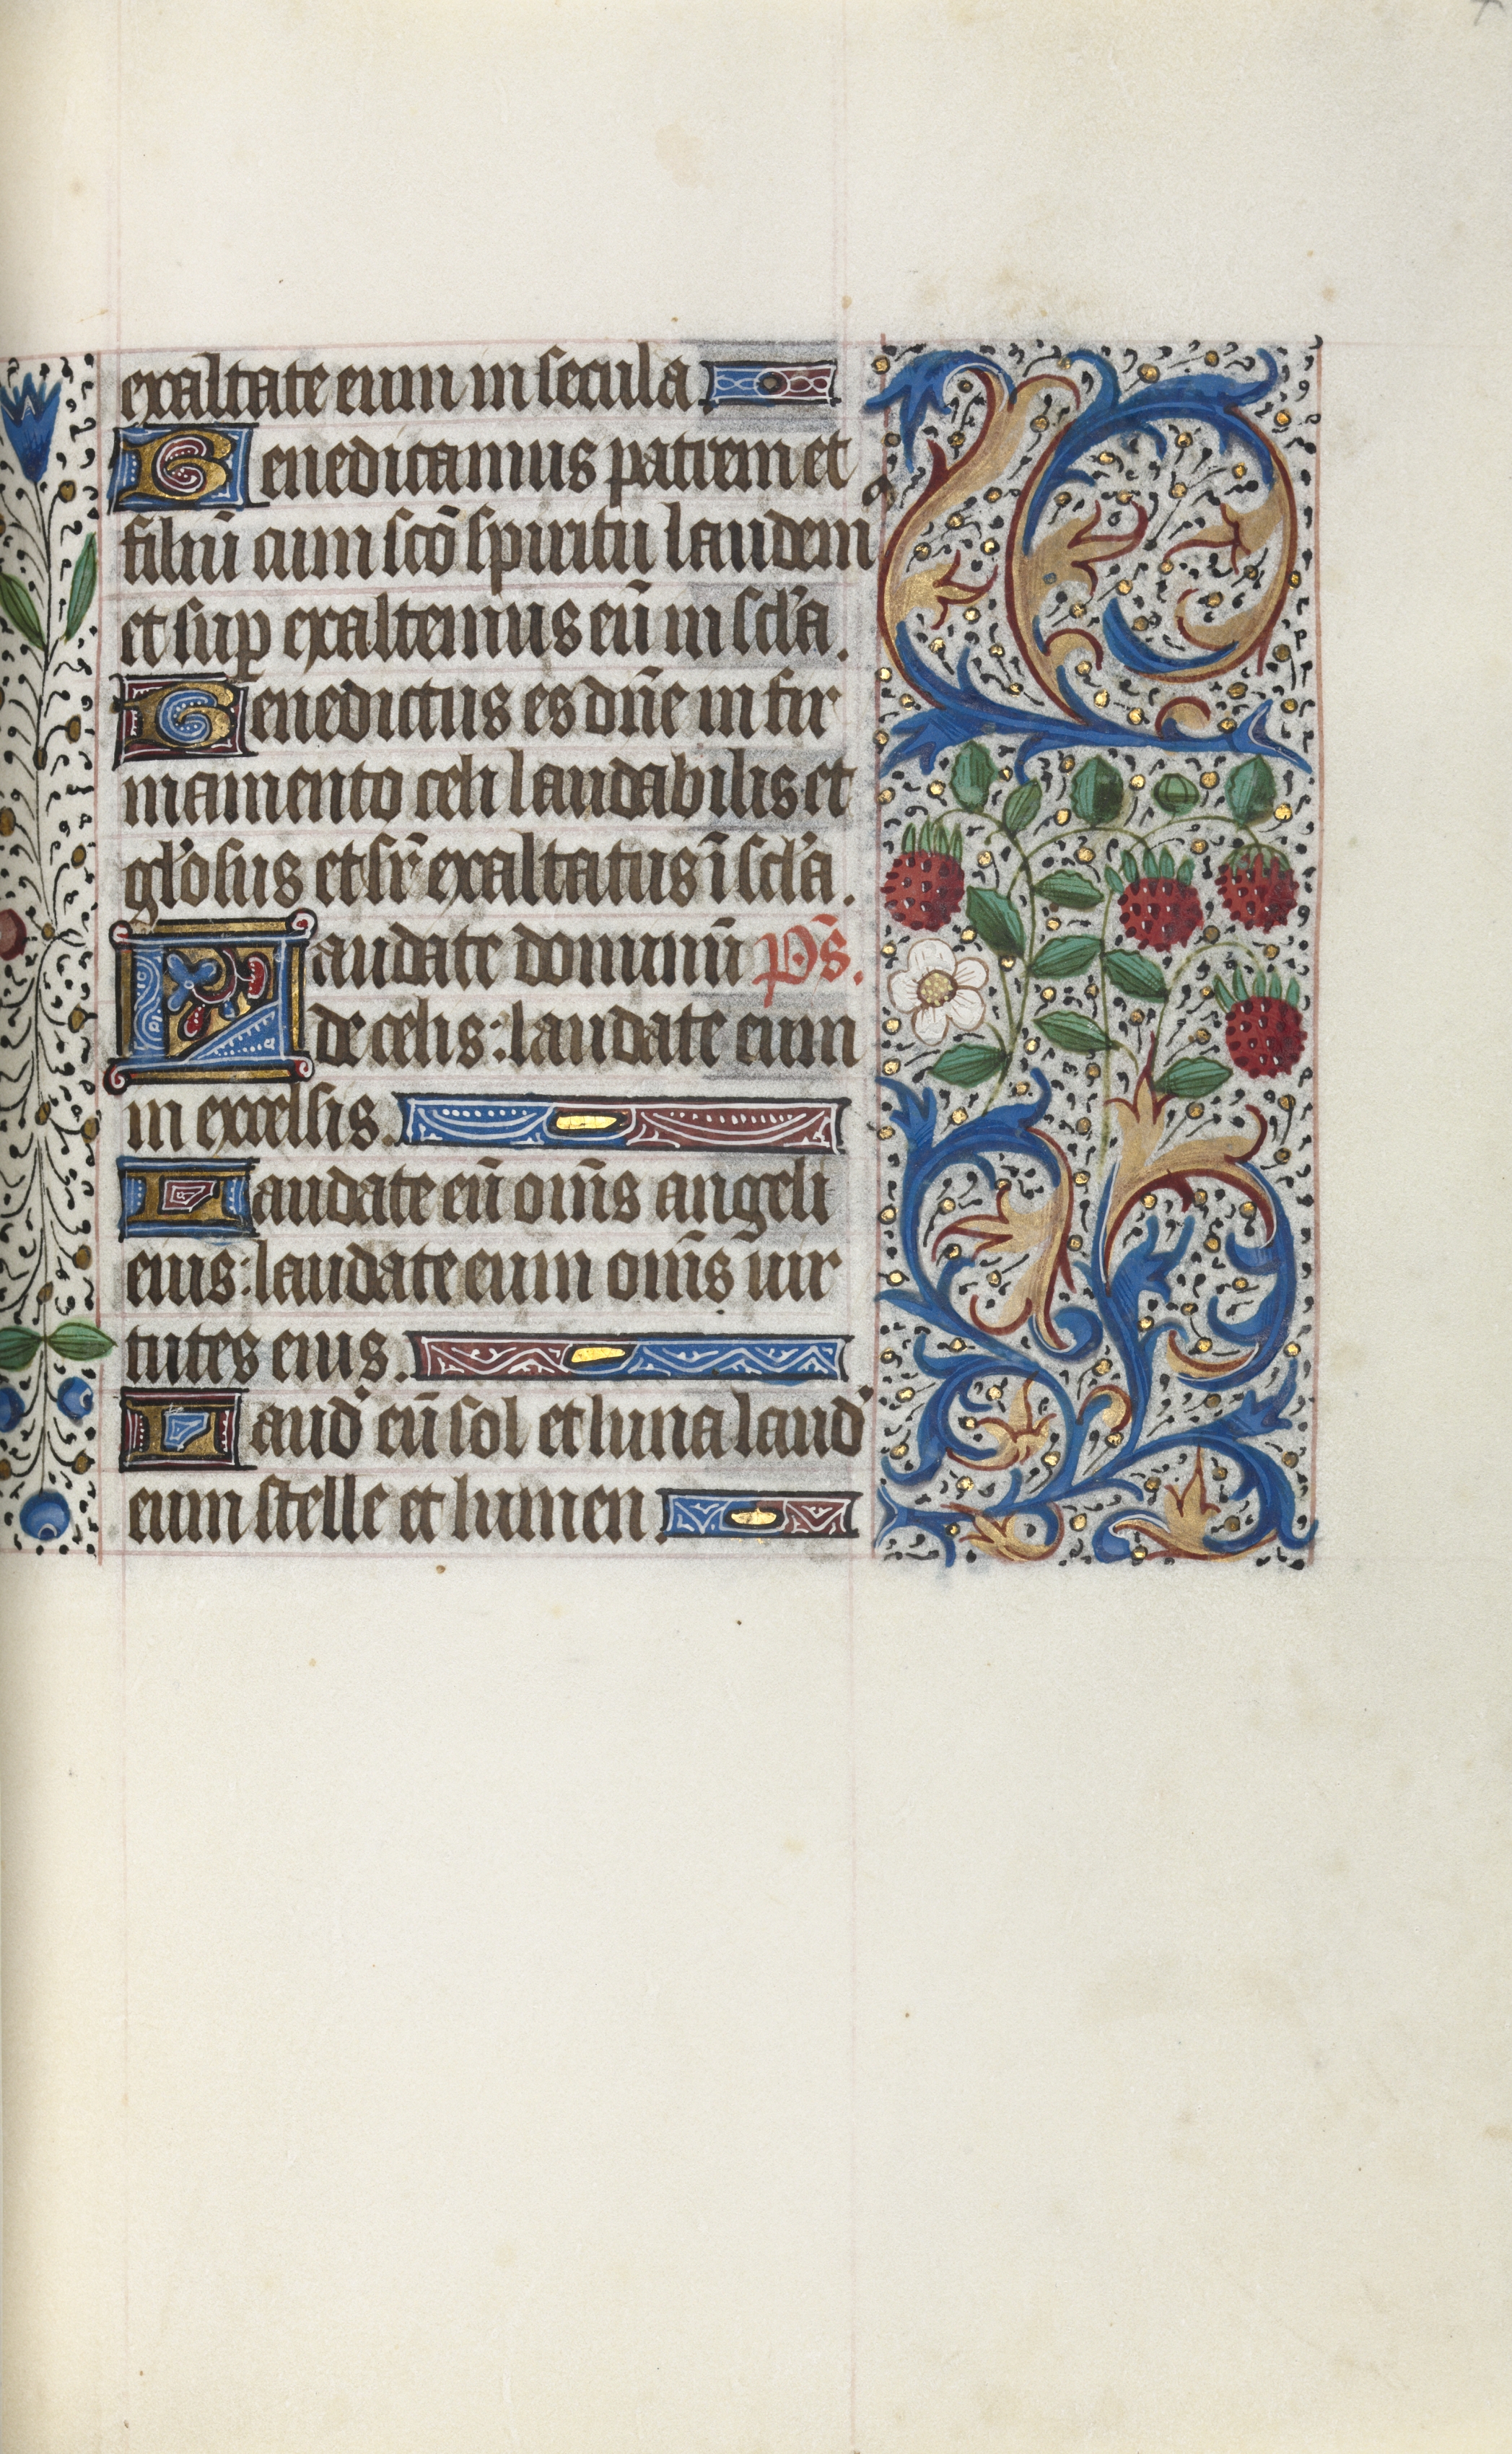 exaltate eum in secula.
Benedicamus patrem et
filiū cum scō spiritu laudem9
et sup exaltemus eū in scl'a.
Benedictus es dn̄e in fir
mamento celi laudabilis et
gl'osus et sr̄ exaltatus ī scl'a.
Laudate dominū p̄s.
de celis: laudate eum
in excelsis.
Laudate eū om̄s angeli
eius: laudate eum om̄s uir
tutes eius.
Laud' eū sol et luna laud'
eum stelle et lumen.